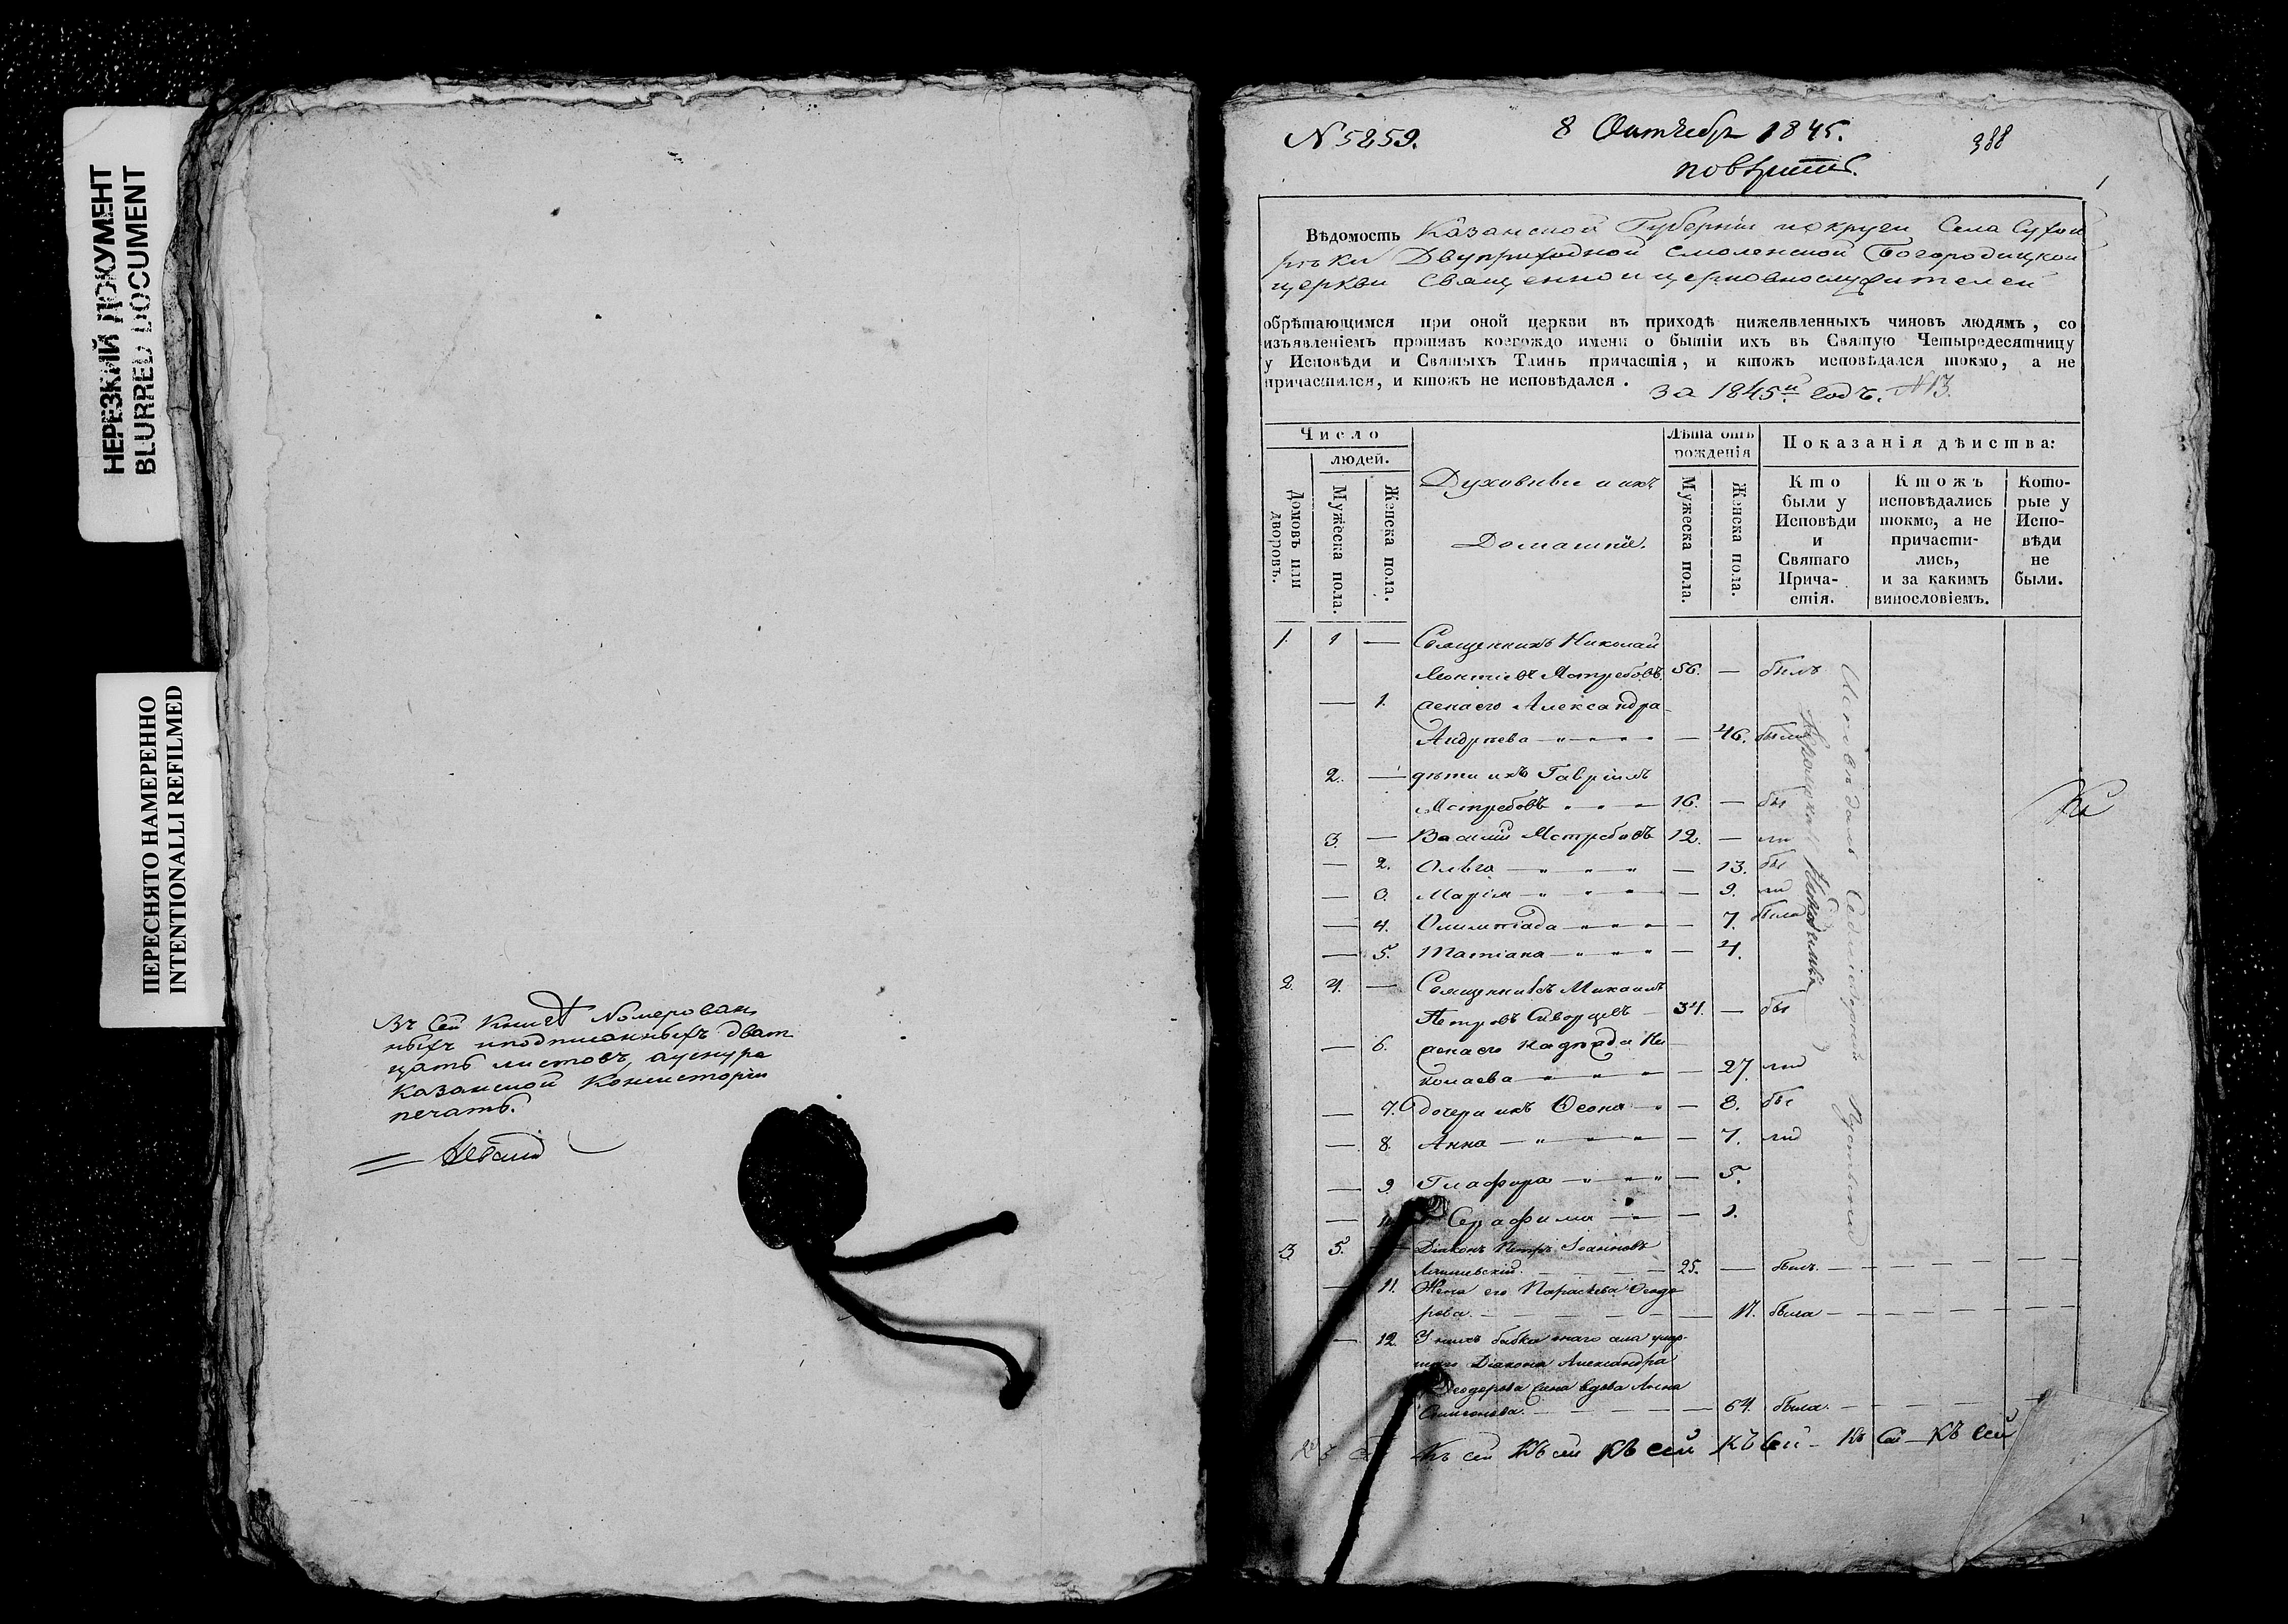 НЕРЕЗКИЙ ДОКУМЕНТ
BLURRED DOCUMENT
ПЕРЕСНЯТО НАМЕРЕННО
INTENTIONALLI REFILMED
Въ сей книгѣ Номерован
ныхъ и подписанныхъ дват
цать листовъ, а у снура
Казанской Консисторіи
печать.
N 5859.
8 Октебр 1845.
388
повѣрить.
1
Вѣдомость Казанской Губерніи и округи Села Сухой
рѣки Двуприходной Смоленской Богородицкой
церкви Священно и церковнослужителей
обрѣтающимся при оной церкви въ приходѣ нижеявленныхъ чиновъ людямъ, со
изъявленіемъ противъ коегождо имени о бытіи ихъ въ Святую Четыредесятницу
у Исповѣди и Святыхъ Таинъ причастія, и ктожъ исповѣдался токмо, а не
причастился, и ктожъ не исповѣдался.
за 1845й годъ. N 13.
Число
людей.
Домовъ или дворовъ.
Мужеска пола.
Женска пола.
Духовные и ихъ
Домашніе.
Лѣта отъ
рожденія
Мужеска пола.
Женска пола.
Показанія дѣиства:
Кто
были у
Исповѣди
и
Святаго
Прича-
стія.
Ктожъ
исповѣдались
токмо, а не
причасти-
лись,
и за какимъ
винословіемъ.
Кото-
рые у
Испо-
вѣди
не
были.
1. 1 — Священникъ Николай
Леонтіевъ Ястребовъ 56. — былъ
— 1. жена его Александра
Андреева — 46. была
2. — дѣти ихъ Гавріилъ
Ястребовъ 16. — бы
3. — Василій Ястребовъ 12. — ли
— 2. Ольга — 13. бы
— 3. Марія — 9. ли
— 4. Олимпіада — 7. была
— 5. Татіана — 4.
2. 4. — Священникъ Михаилъ
Петровъ Скворцевъ 34. — бы
— 6. жена его Надежда Ни
колаева — 27. ли
— 7. дочери ихъ Феона — 8. бы
— 8. Анна — 7. ли
— 9. Глафира — 5.
— 10 Серафима — 1.
3 5. — Діаконъ Петръ Іоанновъ
25. — былъ.
— 11. Жена его Параскева Феодо
рова. — 17. была
— 12. У нихъ бабка онаго села умер-
шаго Діакона Александра
Феодорова сына вдова Анна
— 64. была.
Къ сей Къ сей Къ сей Къ сей Къ сей Къ сей